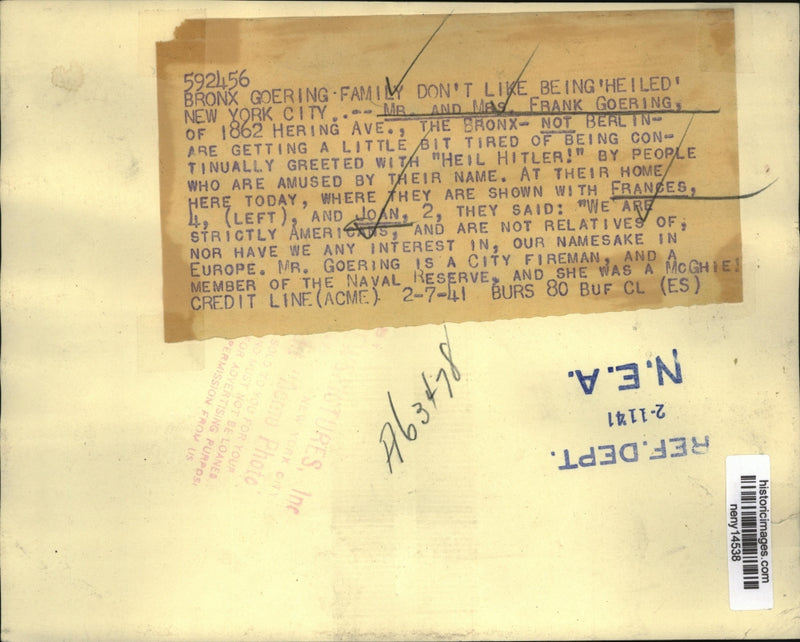 592456
BRONX GOERING FAMILY DON'T LIKE BEING 'HEILED'
NEW YORK CITY..-- MR. AND MRS. FRANK GOERING,
OF 1862 HERING AVE., THE BRONX- NOT BERLIN-
ARE GETTING A LITTLE BIT TIRED OF BEING CON-
TINUALLY GREETED WITH "HEIL HITLER!" BY PEOPLE
WHO ARE AMUSED BY THEIR NAME. AT THEIR HOME
HERE TODAY, WHERE THEY ARE SHOWN WITH FRANCES,
4, (LEFT), AND JOAN, 2, THEY SAID: "WE ARE
STRICTLY AMERICANS, AND ARE NOT RELATIVES OF,
NOR HAVE WE ANY INTEREST IN, OUR NAMESAKE IN
EUROPE. MR. GOERING IS A CITY FIREMAN, AND A
MEMBER OF THE NAVAL RESERVE, AND SHE WAS A MCGHIE.
CREDIT LINE (ACME) 2-7-41 BURS 80 BUF CL (ES)
A63478
REF. DEPT.
2-11'41
N.E.A.
Inc
NEW YORK CITY
Photo
SOLD TO YOU FOR YOUR
MUST NOT BE LOANED
FOR ADVERTISING PURPOSE
PERMISSION FROM US
historicimages.com
neny14538